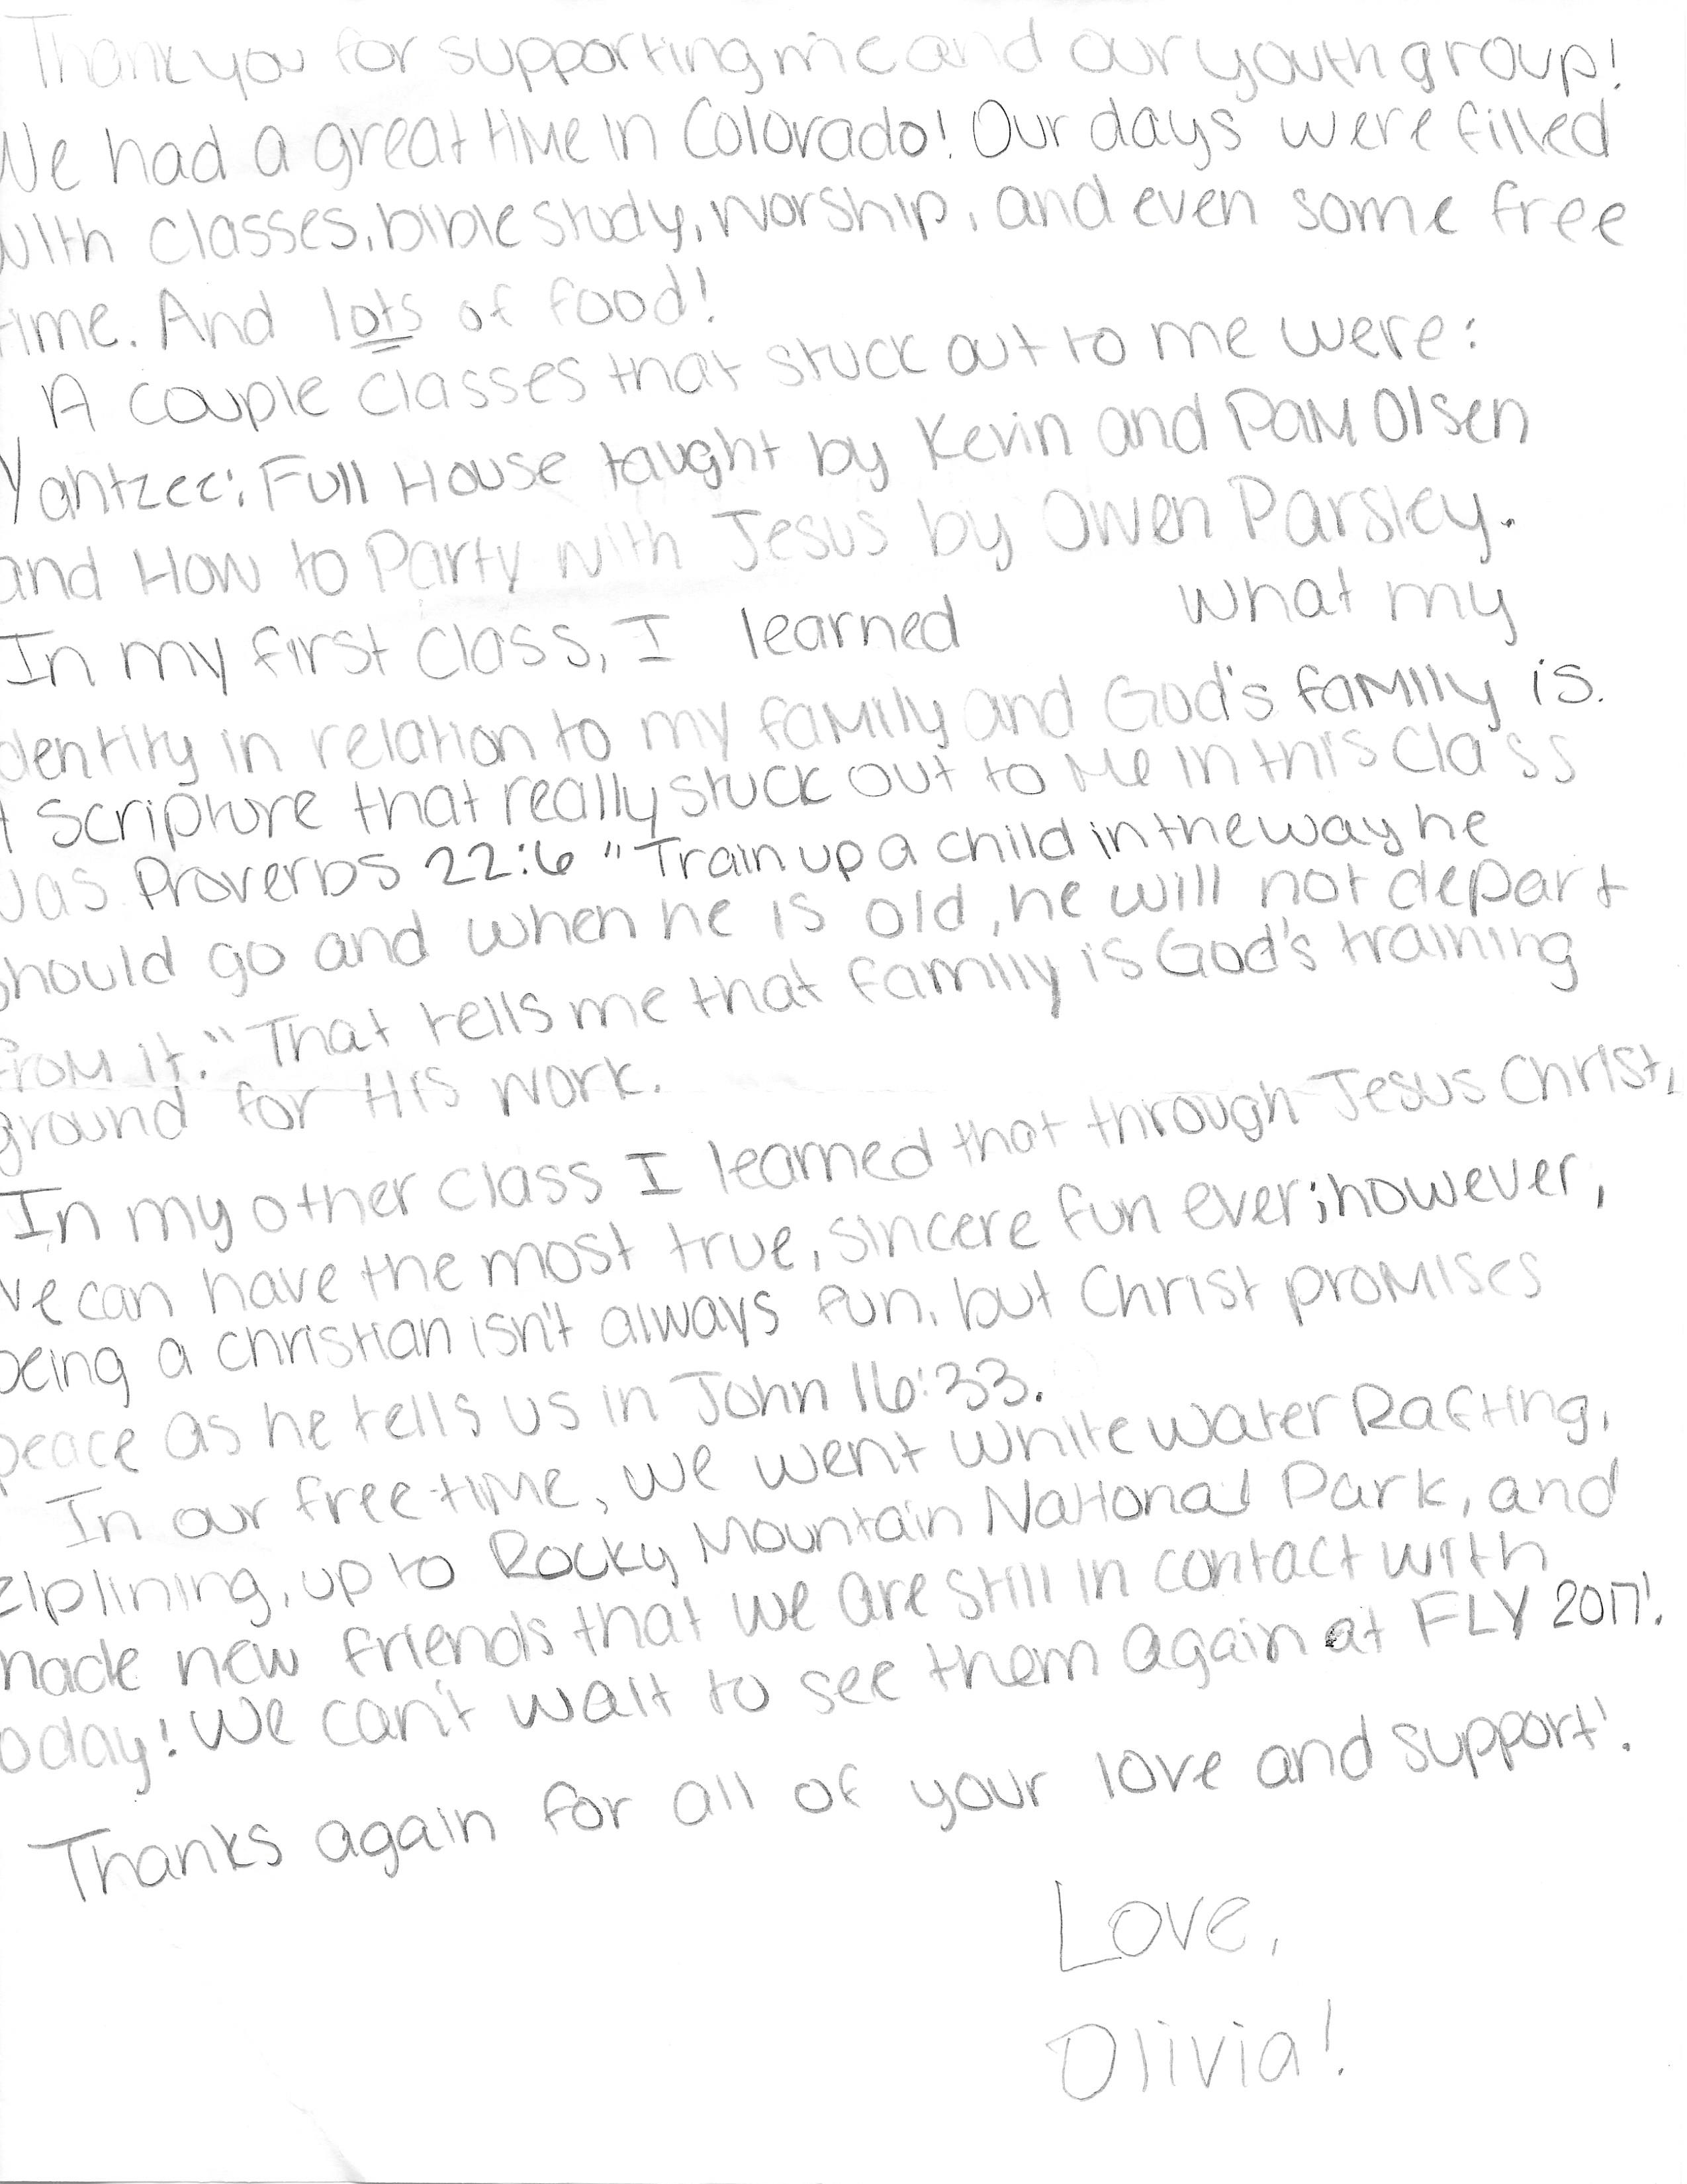 Thank you for supporting me and our youth group!
We had a great time in Colorado! Our days were filled
with classes, bible study, worship, and even some free
time. And lots of food!
A couple classes that stuck out to me were:
Yahtzee: Full House taught by Kevin and Pam Olsen
and How to Party with Jesus by Owen Parsley.
In my first class, I learned what my
dentity in relation to my family and God's family is.
A scripture that really stuck out to me in this class
was Proverbs 22:6 "Train up a child in the way he
should go and when he is old, he will not depart
from it." That tells me that family is God's training
ground for His work.
In my other class I learned that through Jesus Christ,
we can have the most true, sincere fun ever; however,
being a christian isn't always fun, but Christ promises
peace as he tells us in John 16:33.
In our free-time, we went white water Rafting,
ziplining, up to Rocky Mountain National Park, and
made new friends that we are still in contact with
oday! We can't wait to see them again at FLY 2017!
Thanks again for all of your love and support!
Love,
Olivia!